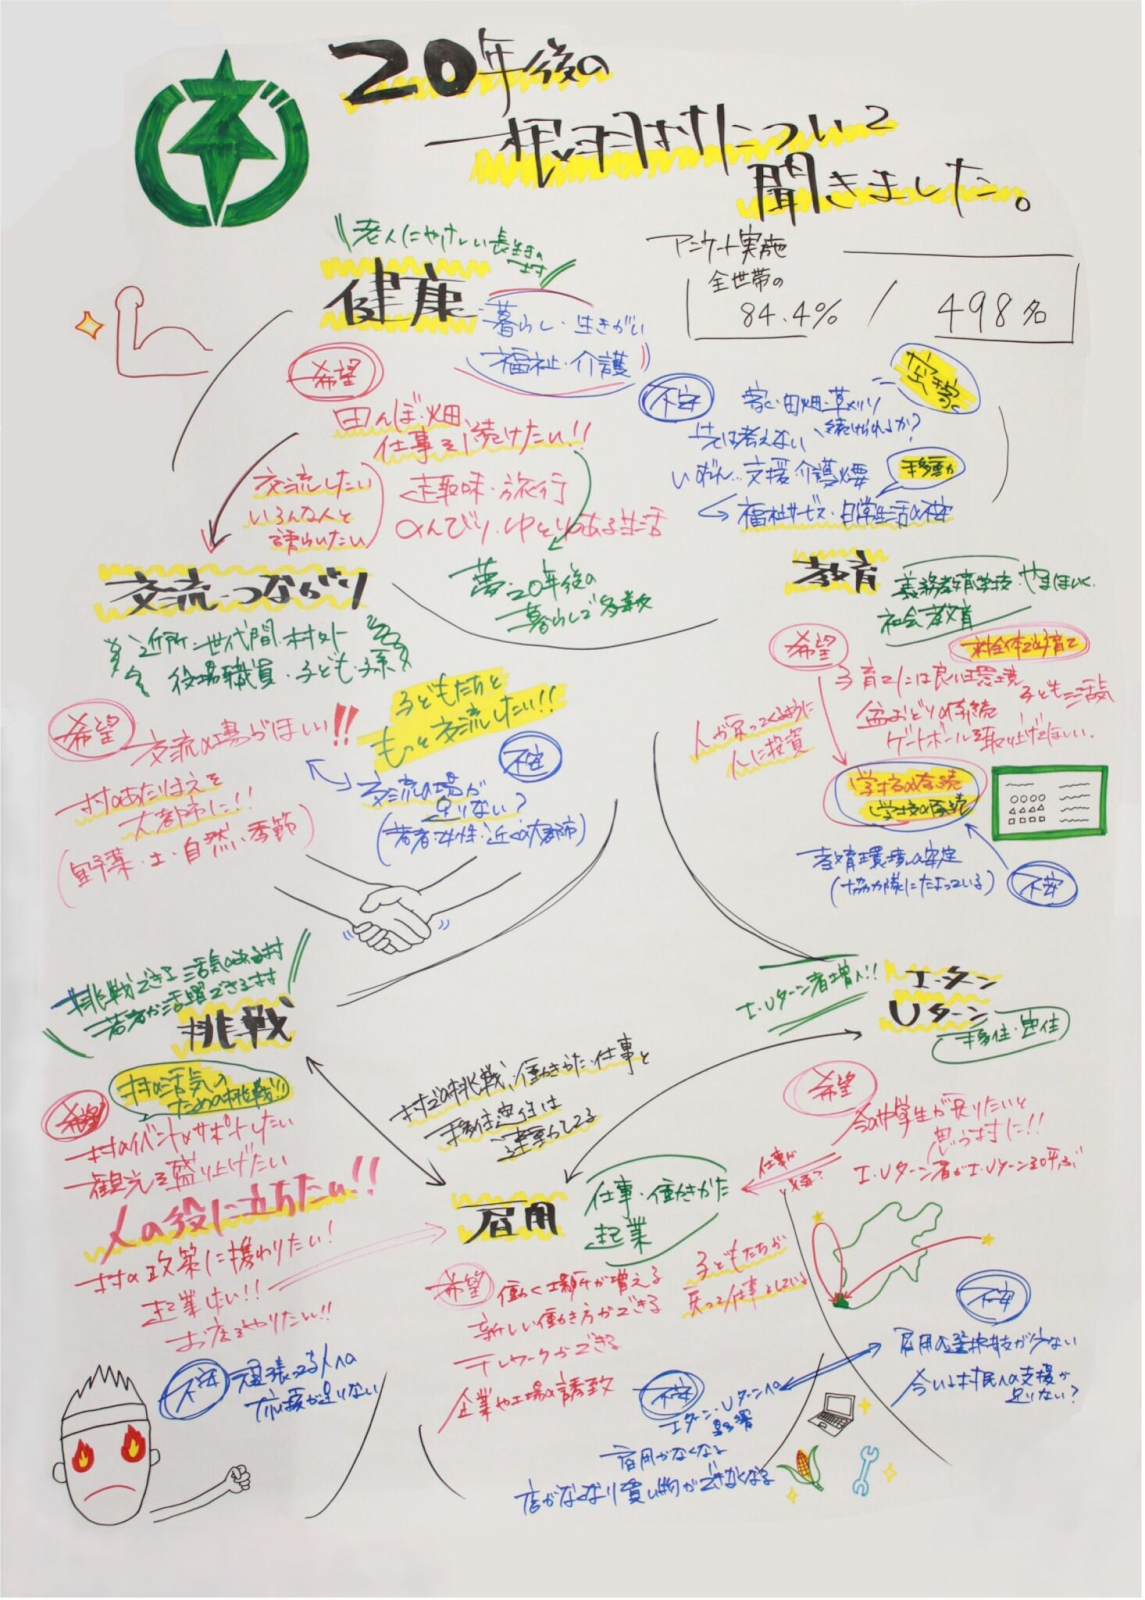 20年後の
根羽村について
聞きました。
老人にやさしい長生きの
村
健康
暮らし・生きがい
福祉・介護
アンケート実施
全世帯の
84.4% / 498名
希望
田んぼ・畑
仕事を続けたい!!
趣味・旅行
のんびり・ゆとりのある生活
交流したい
いろんな人と
語らいたい
夢・20年後の
暮らしで多数
不安
空き家
家・田畑・草刈り
続けられるか?
先は考えない
いずれ…支援・介護必要
移動か
福祉サービス・日常生活の不安
交流・つながり
近所・世代間・村外
役場職員・子ども・孫
希望
交流の場がほしい!!
村のあたりまえを
大都市に!!
(野菜・土・自然・季節)
子どもたちと
もっと交流したい!!
不安
交流の場が
足りない?
(若者・女性・近くの大都市)
教育
義務教育学校・やまほいく
社会教育
希望
村全体で子育て
子育てには良い環境
子どもに活気
盆おどりの存続
ゲートボールを取り上げてほしい
人が戻ってくるように
人に投資
学校の存続
教育環境の安定
(協力隊にたよっている)
不安
挑戦できる活気のある村
若者が活躍できる村
挑戦
村の活気の
ための挑戦!!
希望
村のイベントをサポートしたい
観光を盛り上げたい
人の役に立ちたい!!
村の政策に携わりたい!
起業したい!!
お店をやりたい!!
不安
頑張ってる人への
応援が足りない
村での挑戦、働きかた・仕事と
移住定住は
連動してる
I・Uターン者増へ!!
I・ターン
Uターン
移住・定住
希望
今の中学生が戻りたいと
思う村に!!
I・Uターン者がI・Uターン者呼ぶ
仕事が
必要?
雇用
仕事・働きかた
起業
希望
働く場所が増える
新しい働き方ができる
テレワークができる
企業や工場の誘致
子どもたちが
戻って仕事をしている
不安
雇用の選択肢が少ない
今いる村民への支援が
足りない?
不安
Iターン・Uターンへの
影響
雇用がなくなる
店がなくなり買い物ができなくなる